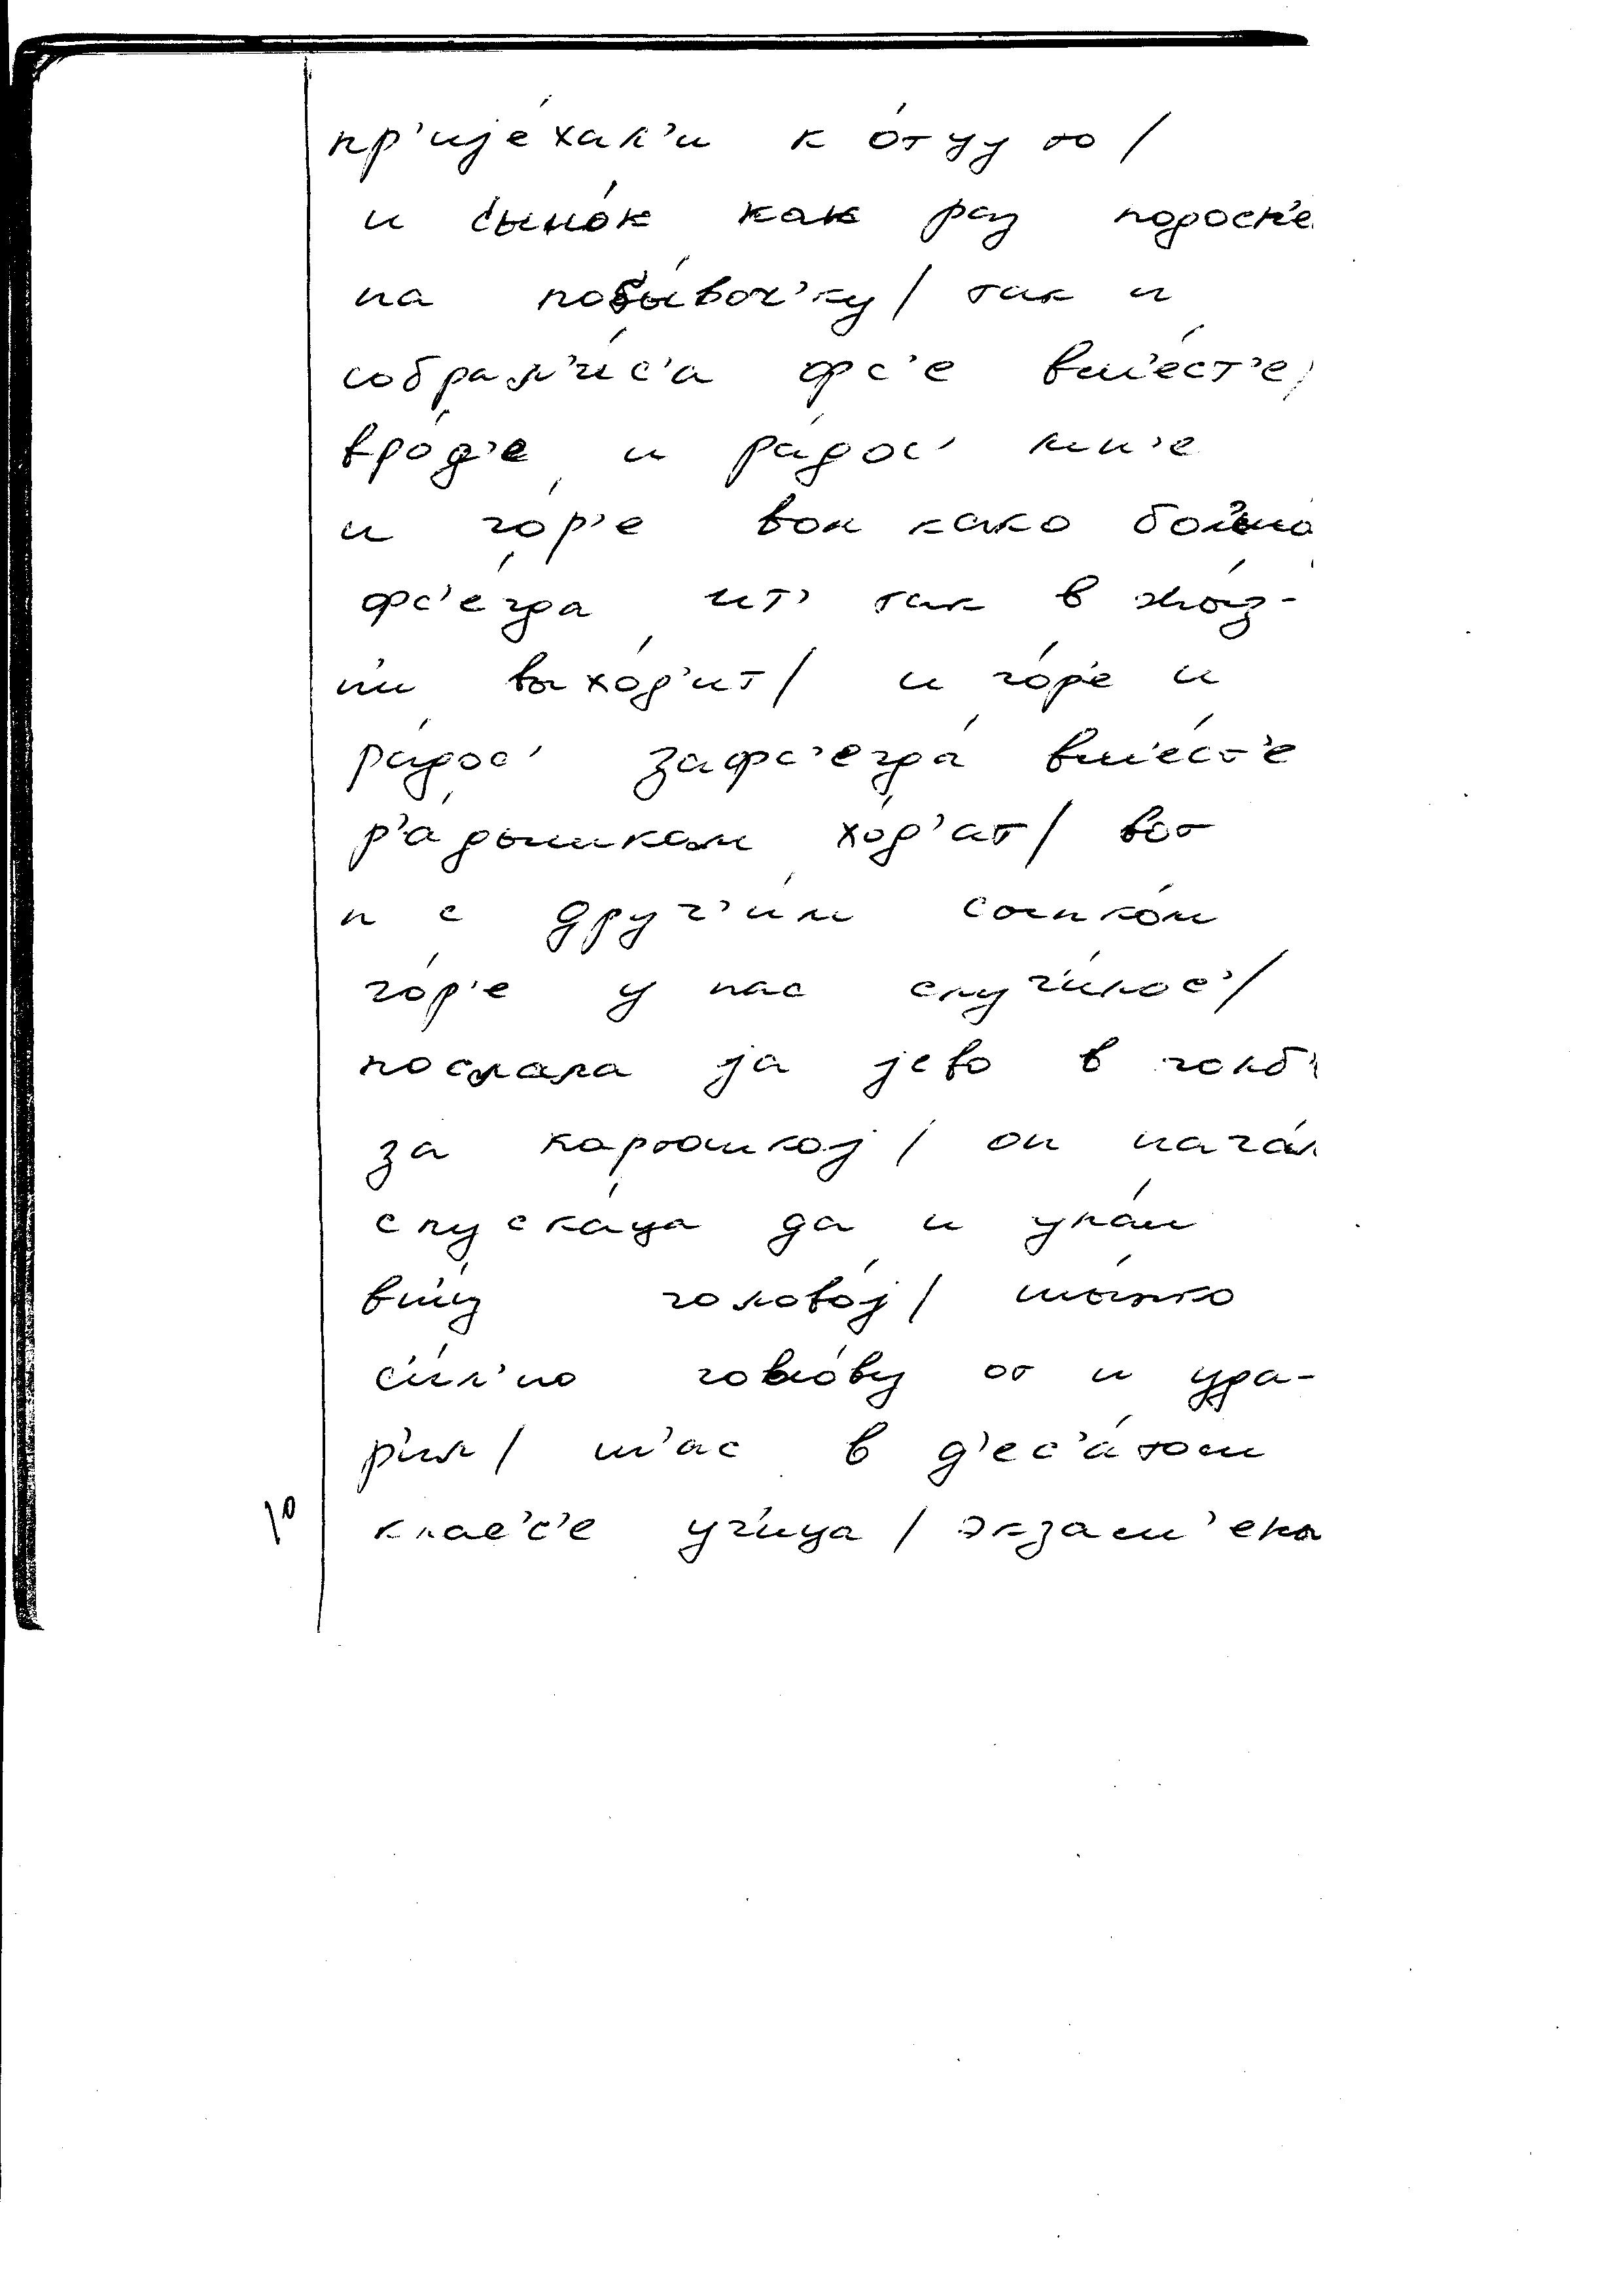 пр'ијéхал'и к óтцу то /
и сынóк как раз подосп'е
на побы́воч'ку / так и
собрал'и́с'а фс'е вм'éст'е /
врóд'е и рáдос' мн'е
и гóр'е вон како
фс'éгда ит' так в жы́з-
н'и выхóд'ит / и гóр'е и
рáдос' зафс'егдá вм'éст'е
р'áдышкам хóд'ат / вот
и с друг'и́м сынкóм
гóр'е у нас случи́лос' /
послала ја јево в голб'
за картошкој / он начáл
спускáца да и упáл
вн'из головóј / шы́пко
си́л'ноголóву от и уда-
р'ил / ш'ас в д'ес'áтом
10 клас'с'е учи́ца / экзам'ены